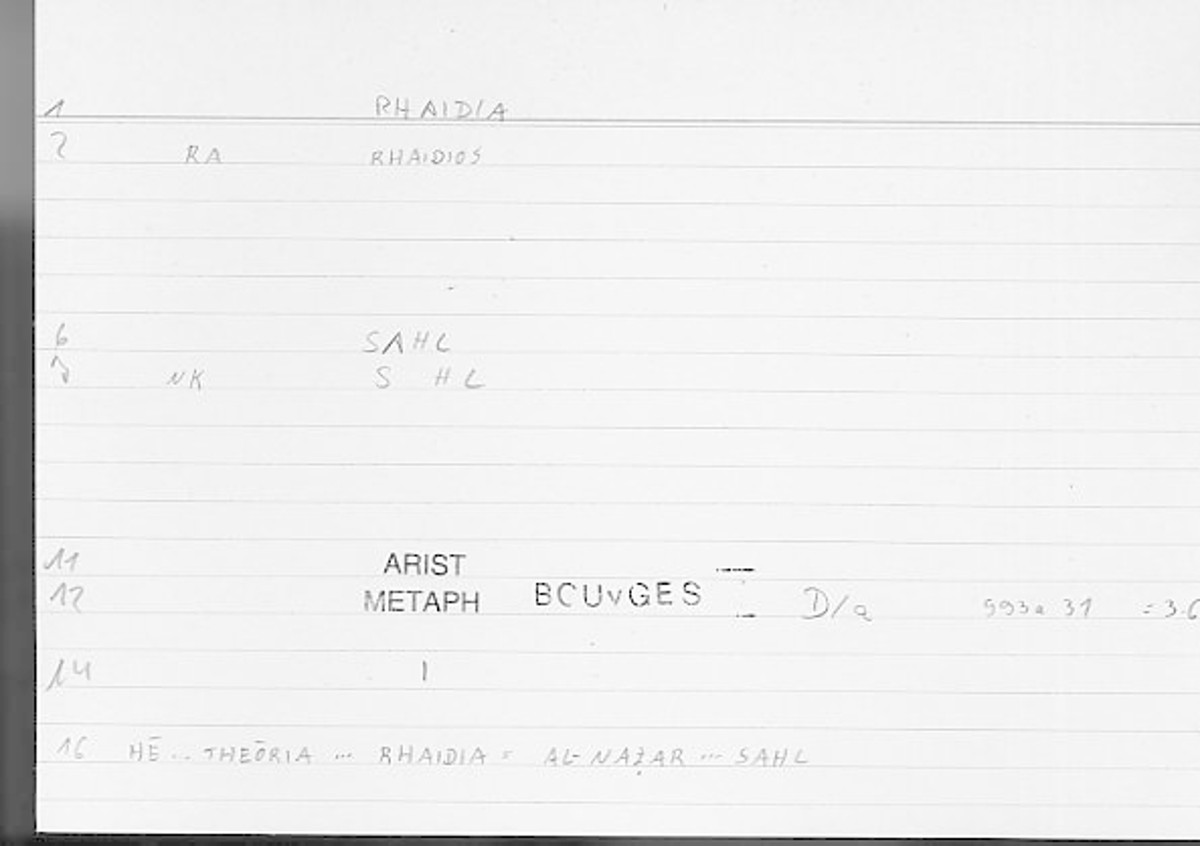 1 RHAIDIA
2 RA RHAIDIOS
6 SAHL
7 NK S HL
11 ARIST
12 METAPH BOUYGES D/a 993a 31 = 3.6
14 1
16 HĒ .. THEŌRIA ... RHAIDIA = AL-NAẒAR ... SAHL